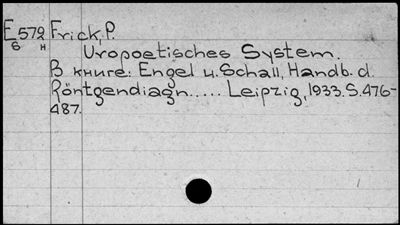 E572 Frick, P.
S H
Uropoetisches System.
В книге: Engel u. Schall, Handb. d.
Röntgendiagn..... Leipzig, 1933. S. 476-
487.